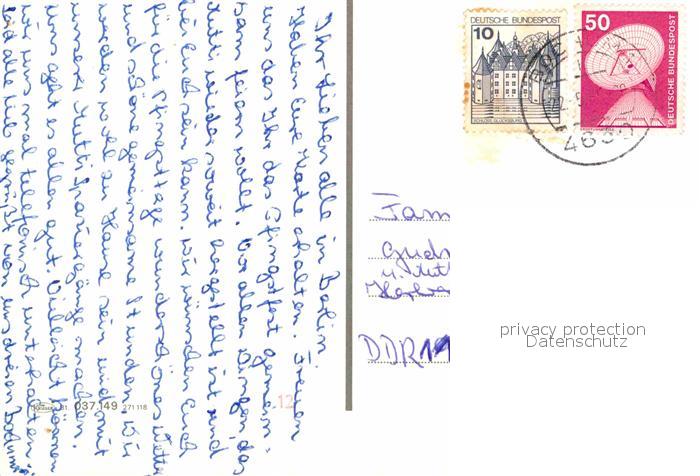 Ihr Lieben alle in Berlin.
Haben Eure Karte erhalten. Freuen
uns das Ihr das Pfingstfest gemein-
sam feiern wollt. Vor allen Dingen das
Mutti wieder soweit hergestellt ist und
bei Euch sein kann. Wir wünschen Euch
für die Pfingsttage wunderschönes Wetter
und schöne gemeinsame Stunden. Wir
werden wohl zu Hause sein und mit
unserer Mutti Spaziergänge machen.
Uns geht es allen gut. Vielleicht können
wir uns mal telefonisch unterhalten.
Seid alle lieb gegrüßt von uns dreien
037.149
271 118
12
10
DEUTSCHE BUNDESPOST
50
DEUTSCHE BUNDESPOST
4630
Fam
Gud
u.
DDR
privacy protection
Datenschutz